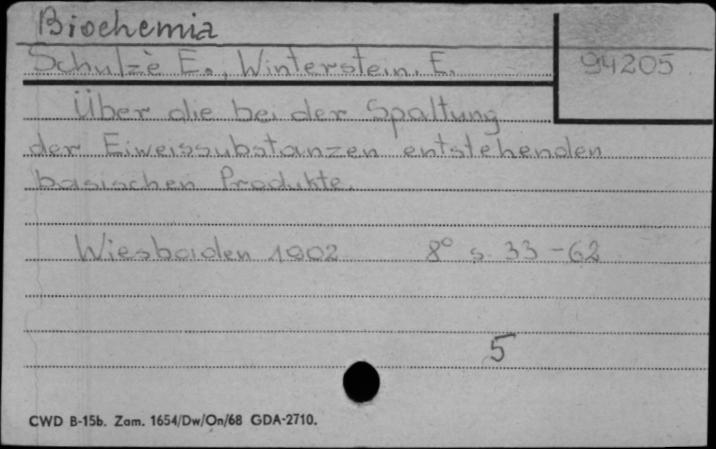 Biochemia
Schulzè E., Winterstein. E. 94205
Über die bei der Spaltung
der Eiweissubstanzen entstehenden
basischen Produkte.
Wiesbaden 1902 8° s. 33-62
5
CWD B-15b. Zam. 1654/Dw/On/68 GDA-2710.